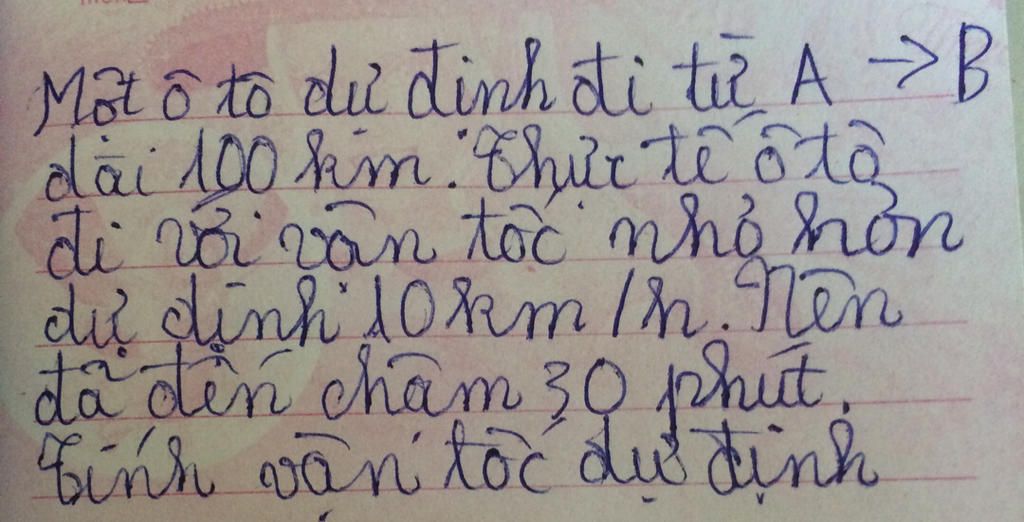 Một ô tô dự định đi từ A -> B
dài 100 km. Thực tế ô tô
đi với vận tốc nhỏ hơn
dự định 10 km/h. Nên
đã đến chậm 30 phút.
Tính vận tốc dự định